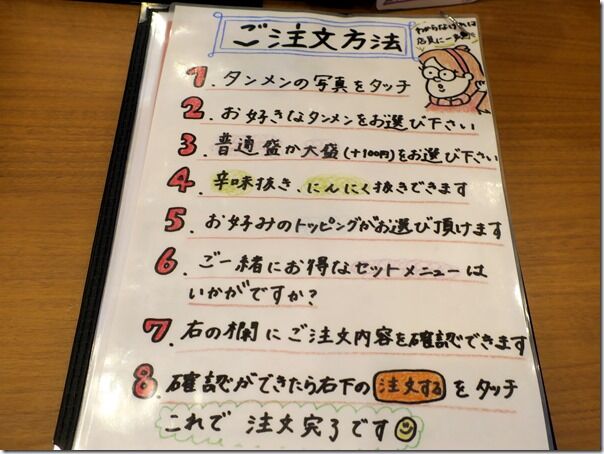 ご注文方法
わからなければ
店員に一声
1. タンメンの写真をタッチ
2. お好きなタンメンをお選び下さい
3. 普通盛か大盛(+100円)をお選び下さい
4. 辛味抜き、にんにく抜きできます
5. お好みのトッピングがお選び頂けます
6. ご一緒にお得なセットメニューは
いかがですか?
7. 右の欄にご注文内容を確認できます
8. 確認ができたら右下の 注文する をタッチ
これで 注文完了です